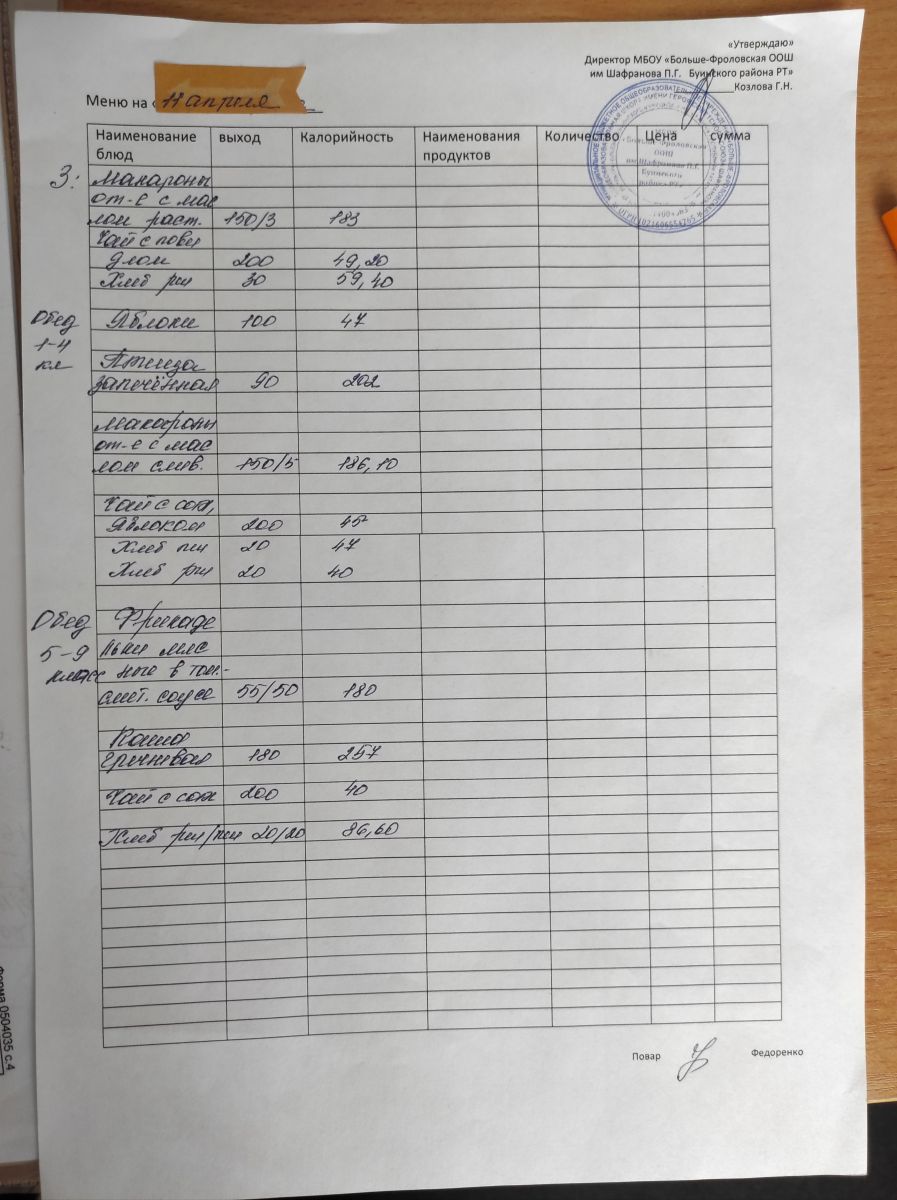 «Утверждаю»
Директор МБОУ «Больше-Фроловская ООШ
им Шафранова П.Г. Буинского района РТ»
Козлова Г.Н.
Меню на «11 апреля
Наименование блюд выход Калорийность Наименования продуктов Количество Цена сумма
З:
Макароны
от-е с мас
лом раст. 150/3 183
Чай с повид
лом 200 49,20
Хлеб рж 30 59,40
Обед
1-4
кл
Яблоки 100 47
Птица
запечённая 90 202
Макароны
от-е с мас
лом слив. 150/5 186,10
Чай с сах,
Яблоком 200 45
Хлеб пш 20 47
Хлеб рж 20 40
Обед
5-9
класс
Фрикаде
льки мяс
ные в том.-
смет. соусе 55/50 180
Каша
гречневая 180 257
Чай с сах 200 40
Хлеб рж/пш 20/20 86,60
Повар Федоренко
«Больше-Фроловская
ООШ
им Шафранова П.Г.
Буинского
района РТ»
Форма 0504035 с.4